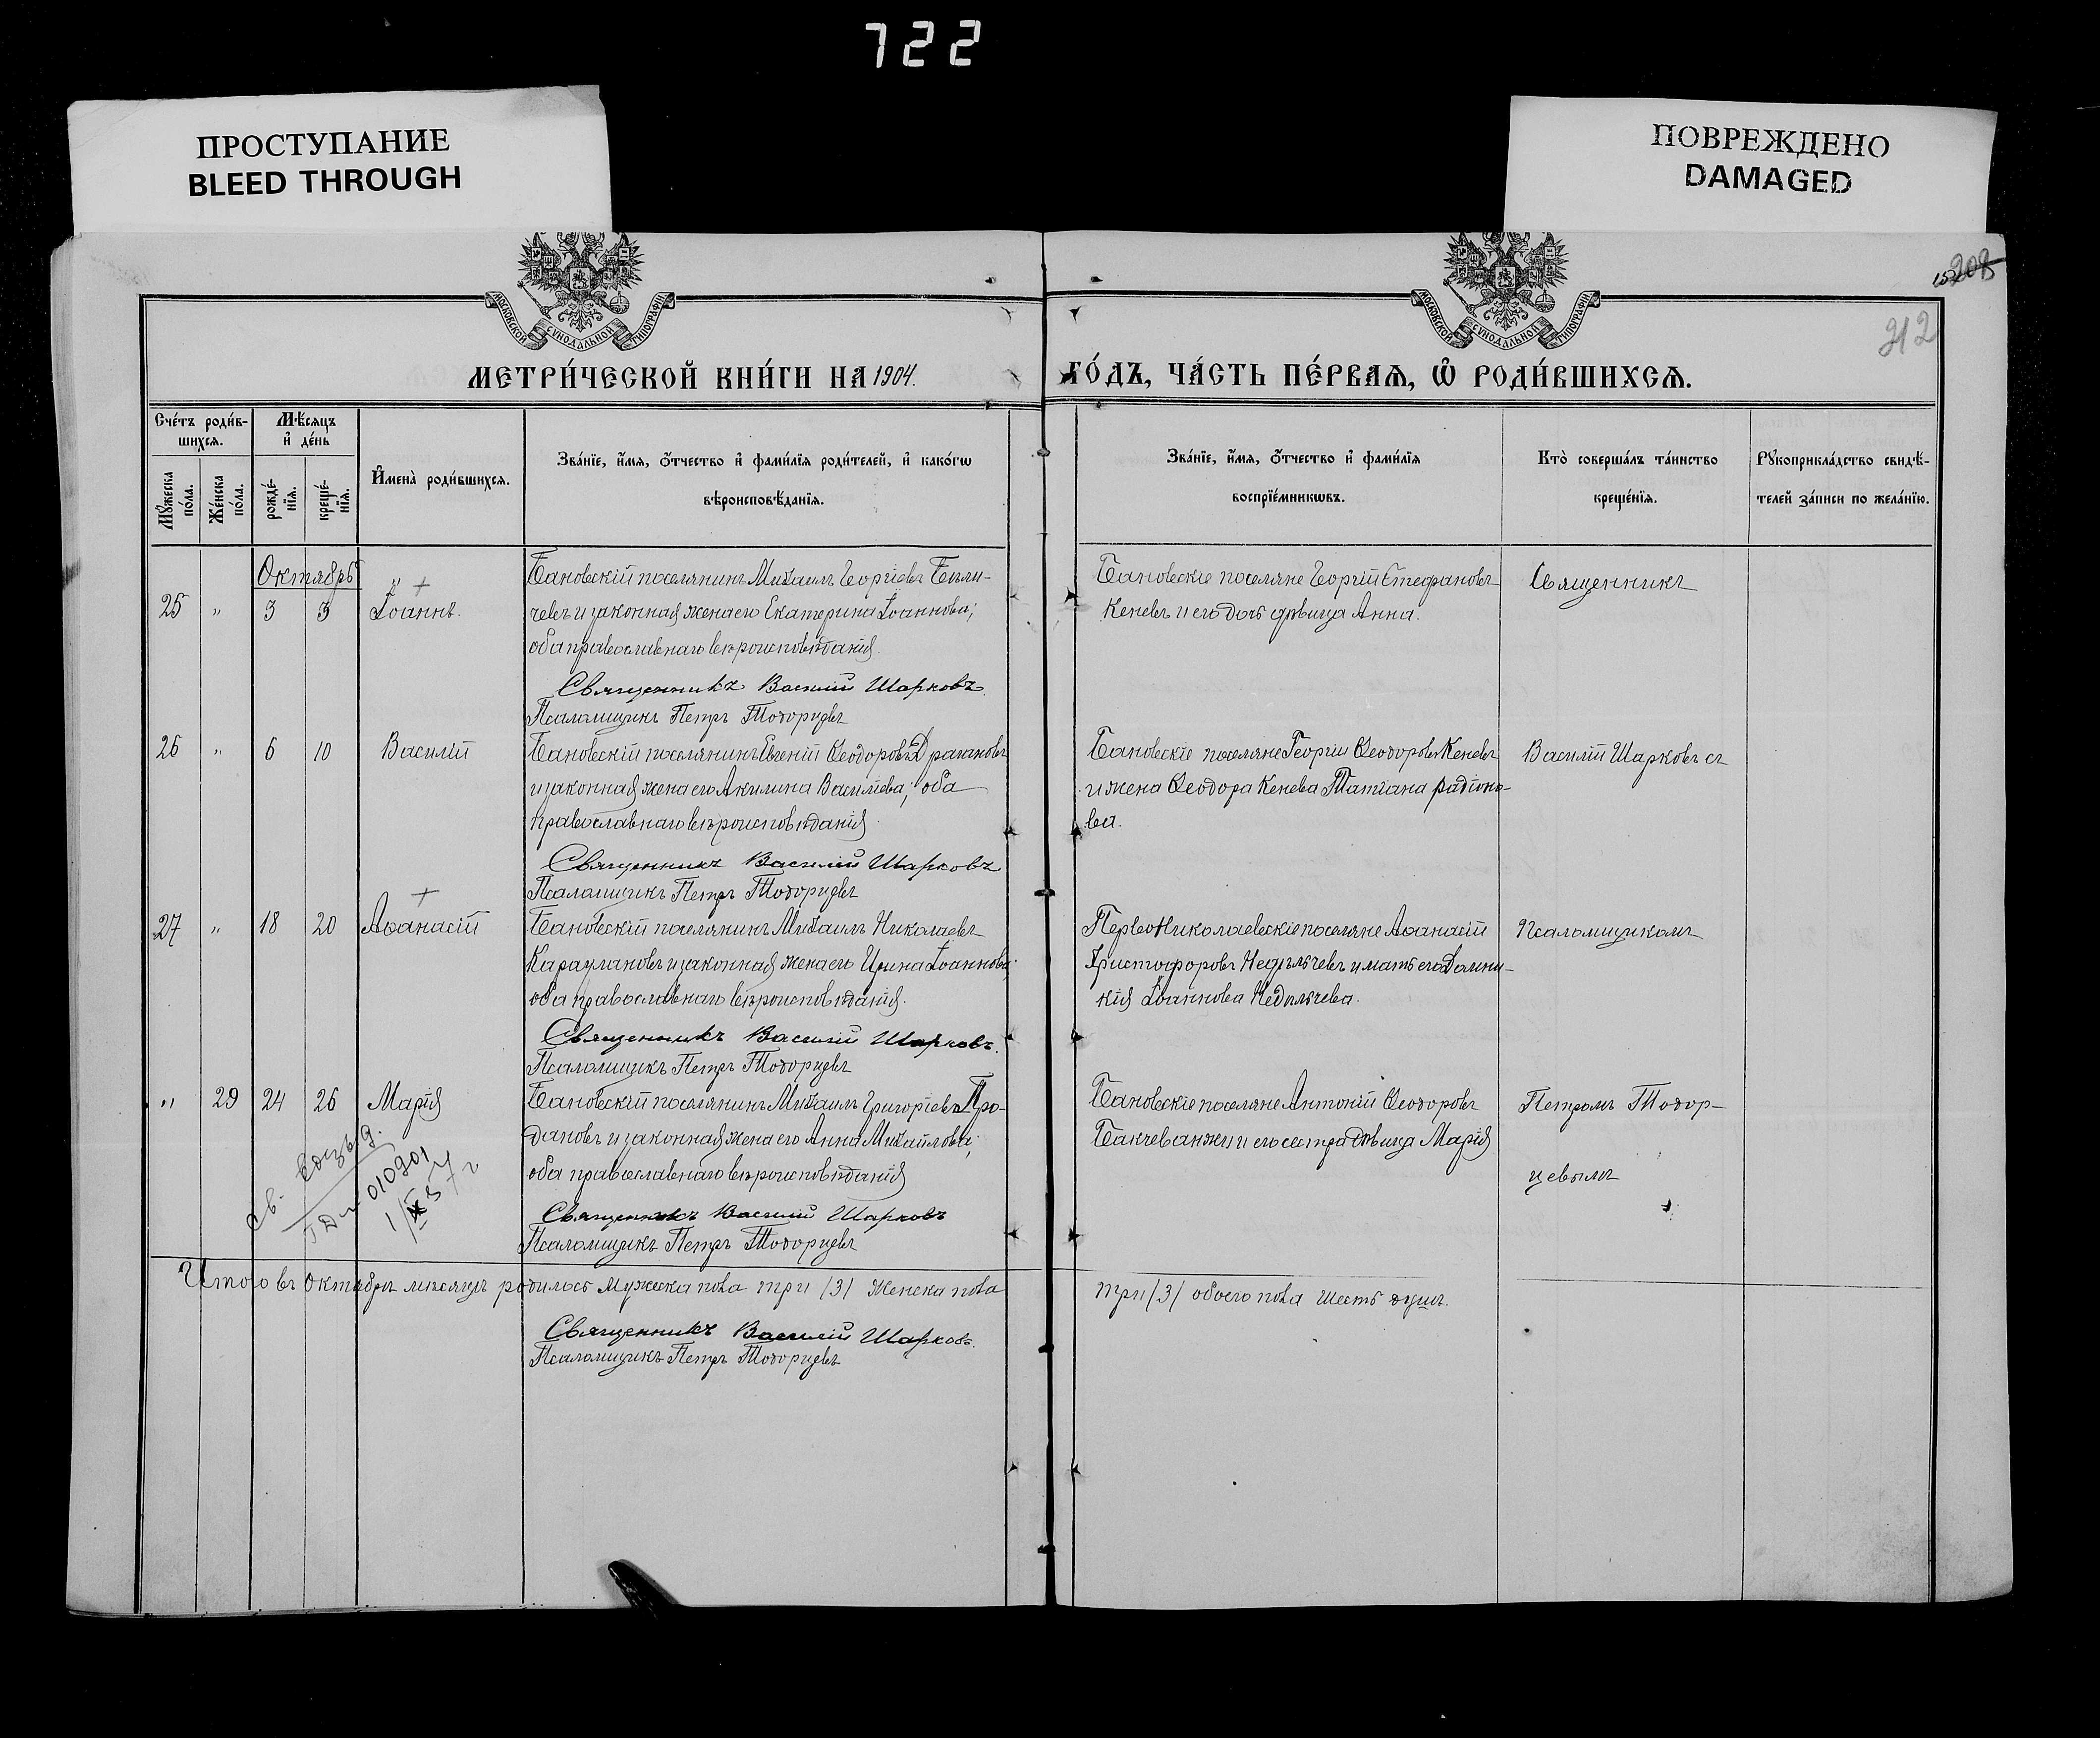 722
ПРОСТУПАНИЕ
BLEED THROUGH
ПОВРЕЖДЕНО
DAMAGED
МОСКОВСКОЙ СУНОДАЛЬНОЙ ТИПОГРАФІИ
МОСКОВСКОЙ СУНОДАЛЬНОЙ ТИПОГРАФІИ
208
312
МЕТРИ́ЧЕСКОЙ КНИ́ГИ НА 1904. ГО́ДЪ, ЧА́СТЬ ПЕ́РВАѦ, Ѡ҆ РОДИ́ВШИХСѦ.
Сче́тъ роди́в-
шихсѧ.
Мѣ́сѧцъ
и҆ де́нь
Мꙋ́жеска
по́ла.
Же́нска
по́ла.
рожде́-
нїѧ.
креще́-
нїѧ.
И҆мена̀ роди́вшихсѧ.
Зва́нїе, и҆́мѧ, ѻ҆́тчество и҆ фами́лїѧ роди́телей, и҆ како́гѡ
вѣроисповѣ́данїѧ.
Зва́нїе, и҆́мѧ, ѻ҆́тчество и҆ фами́лїѧ
воспрїе́мникѡвъ.
Кто̀ соверша́лъ та́инство
креще́нїѧ.
Рꙋкоприкла́дство свидѣ́-
телей за́писи по жела́нїю.
Октябрь
25 „ 3 3 Іоаннъ.
Бановскій поселянинъ Михаилъ Георгіевъ Били-
чевъ и законная жена его Екатерина Іоаннова;
оба православнаго вѣроисповѣданія.
Священникъ Василій Шарковъ.
Псаломщикъ Петръ Тодорцевъ
Бановскіе поселяне Георгій Стефановъ
Кеневъ и его дочь дѣвица Анна.
Священникъ
26 „ 6 10 Василій
Бановскій поселянинъ Евгеній Ѳеодоровъ Драгановъ
и законная жена его Акилина Василіева; оба
православнаго вѣроисповѣданія.
Священникъ Василій Шарковъ
Псаломщикъ Петръ Тодорцевъ
Бановскіе поселяне Георгіи Ѳеодоровъ Кеневъ
и жена Ѳеодора Кенева Татіана радіоно-
ва.
Василій Шарковъ съ
27 „ 18 20 Аѳанасій
Бановскій поселянинъ Михаилъ Николаевъ
Ераулановъ и законная жена его Ирина Іоаннова;
оба православнаго вѣроисповѣданія.
Священникъ Василій Шарковъ.
Псаломщикъ Петръ Тодорцевъ
Перво Николаевскіе поселяне Аѳанасій
Христофоровъ Недѣльчевъ и мать его Домни-
кія Іоаннова Недѣльчева.
Псаломщикомъ
„ 29 24 26 Марія
Бановскій поселянинъ Михаилъ Григоріевъ Про-
дановъ и законная жена его Анна Михайлова;
оба православнаго вѣроисповѣданія
Священникъ Василій Шарковъ
Псаломщикъ Петръ Тодорцевъ
Бановскіе поселяне Антоній Ѳеодоровъ
Бакчеванжи и его сестра дѣвица Марія
Петромъ Тодор-
цевымъ
Св.
010901
Итого въ Октябрѣ мѣсяцѣ родилось мужеска пола три /3/ женска пола
три /3/ обоего пола шесть душъ.
Священникъ Василій Шарковъ.
Псаломщикъ Петръ Тодорцевъ